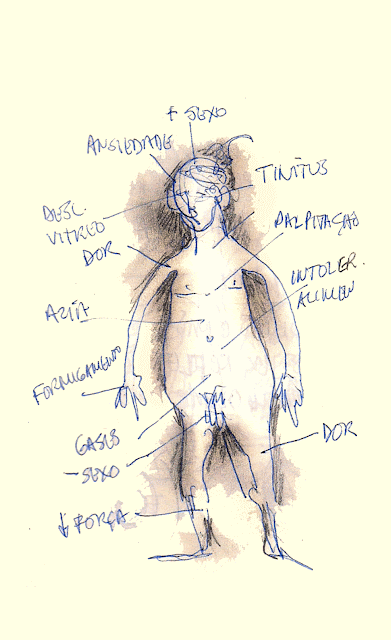 + SEXO
ANSIEDADE
TINITUS
DESC.
VITREO
DOR
PALPITAÇÃO
INTOLER.
ALIMEN
AZIA
FORMIGAMENTO
GASES
- SEXO
DOR
↓ FORÇA